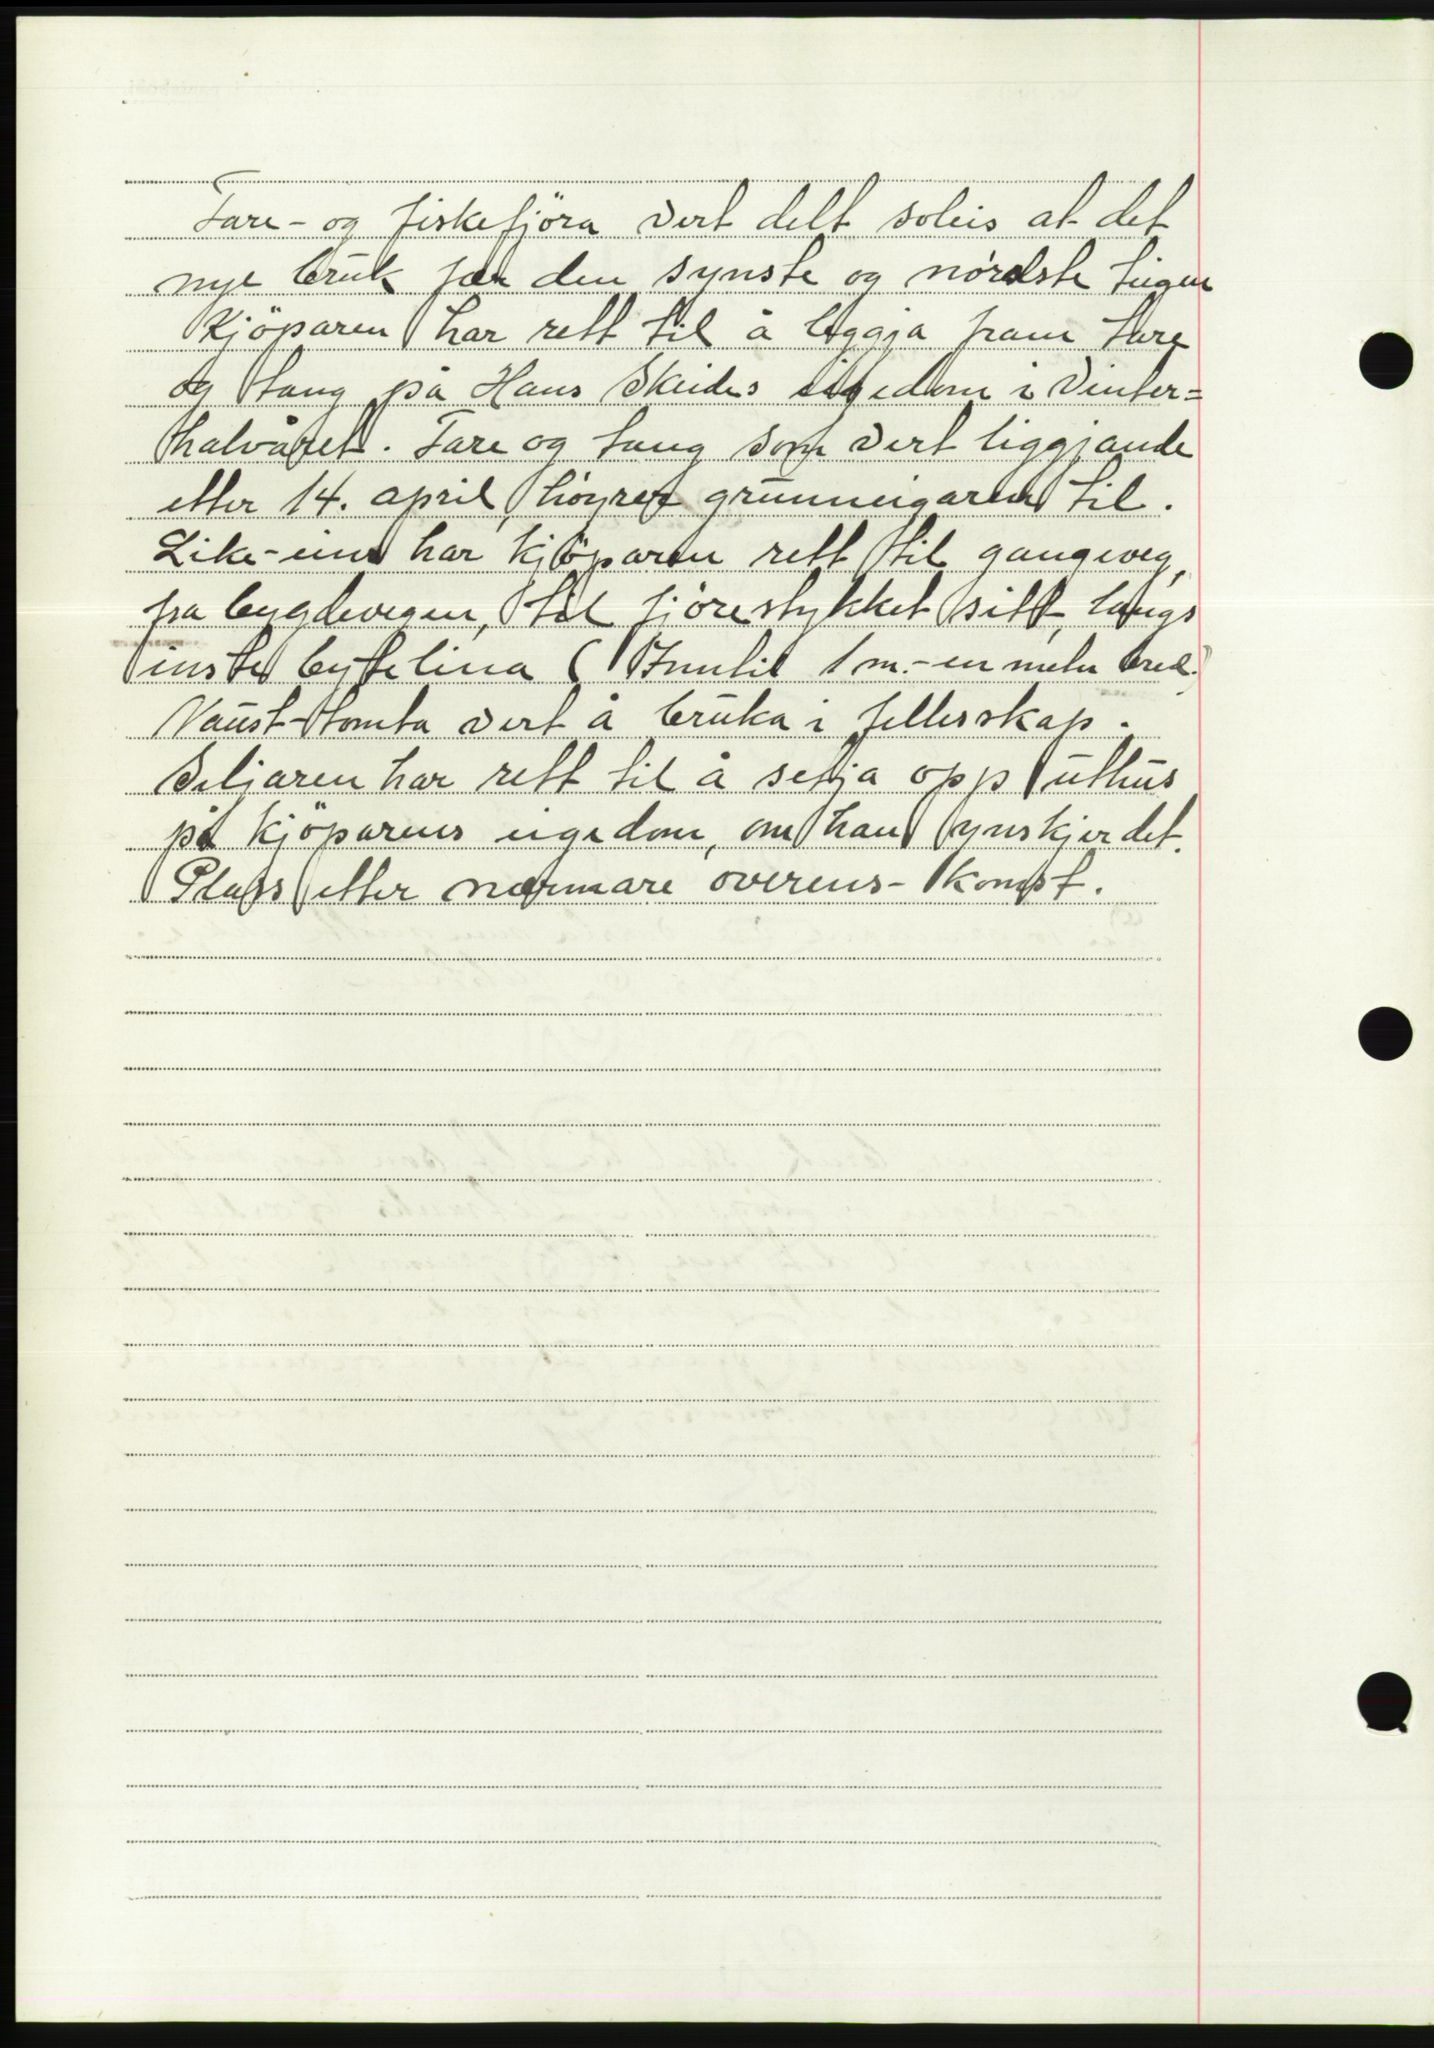 Tare- og fiskefjöra vert delt soleis at det
nye bruk fær den synste og nordste teigen
Kjöparen har rett til å leggja fram tare
og tang på Hans Skeides eigedom i Vinter=
halvåret. Tare og tang som vert liggjande
etter 14. april, höyrer grunneigaren til.
Like-eins har kjöparen rett til gangeveg,
fra bygdevegen, til fjörestykket sitt, langs
inste bytelina ( Inntil 1 m.-en meter bred.)
Naust-tomta vert å bruka i fellesskap.
Seljaren har rett til å setja opp uthus
på kjöparens eigedom, om han ynskjer det.
Plass etter nærmare overens-komst.